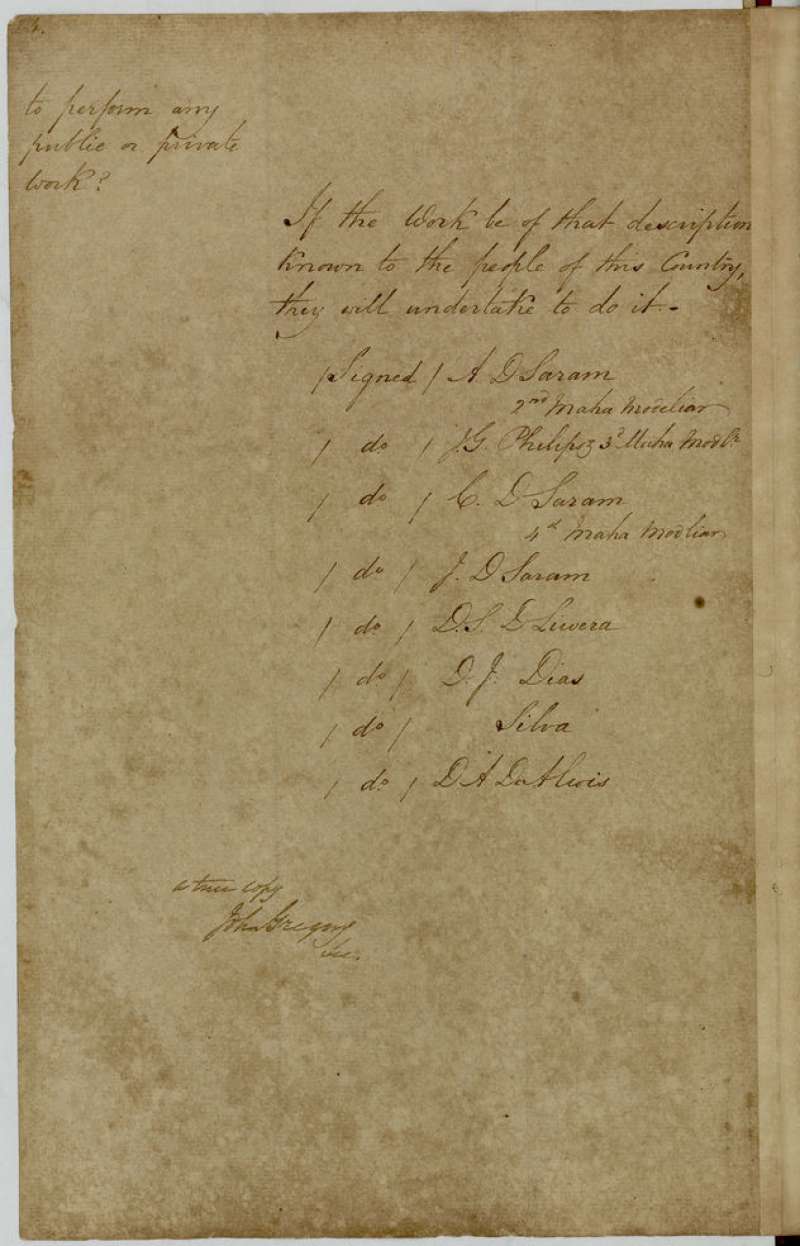 to perform any
public or private
work?
If the Work be of that description
known to the people of this Country,
they will undertake to do it.-
/Signed/ A. D Saram
2nd Maha Modeliar
/ do / J.G. Philipsz 3d Maha Modlr
/ do / C. D Saram
4th Maha Modliar
/ do / J. D Saram
/ do / D.S. D Liwera
/ do / D. J. Dias
/ do / Silva
/ do / D A De Alwis
a true copy
John Gregory
Sec.